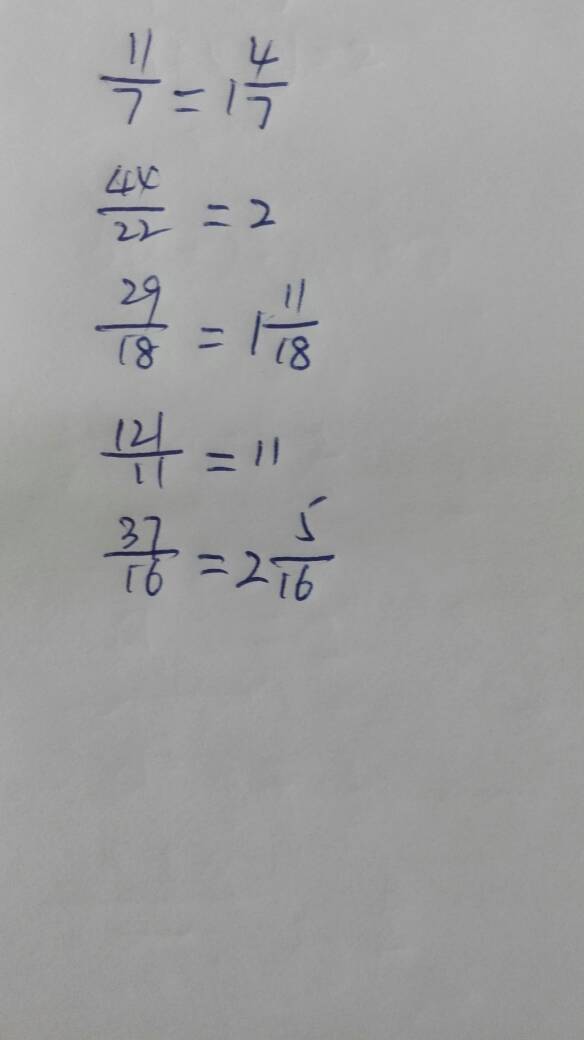 11/7 = 1 4/7
44/22 = 2
29/18 = 1 11/18
121/11 = 11
37/16 = 2 5/16